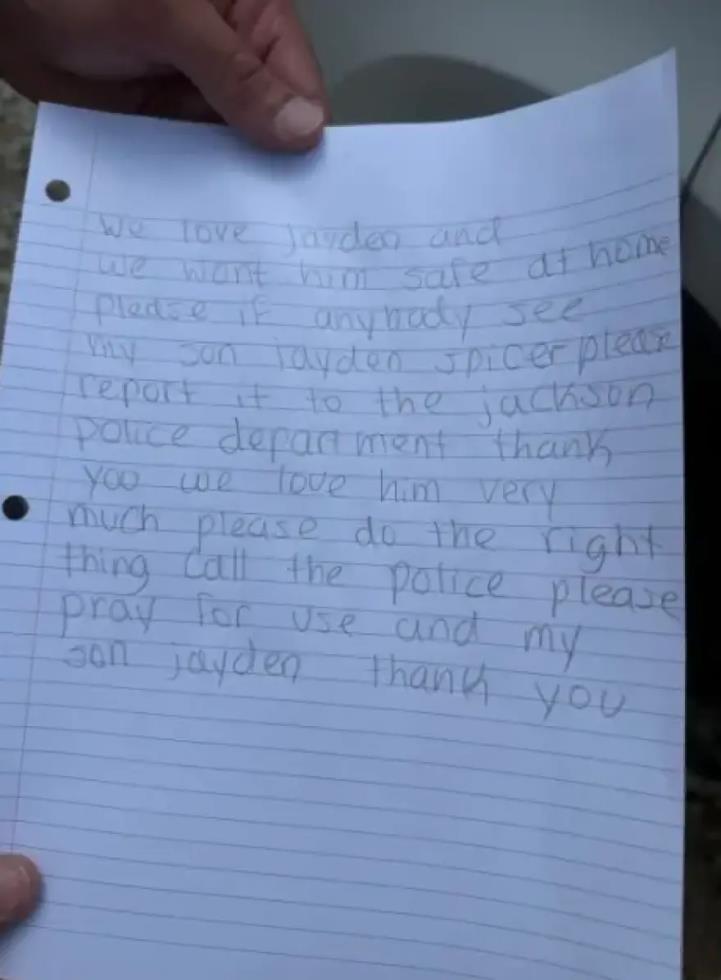 We love Jayden and
we want him safe at home
please if anybody see
my son jayden spicer please
report it to the jackson
police department thank
yoo we love him very
much please do the right
thing call the police please
pray for use and my
son jayden thank you